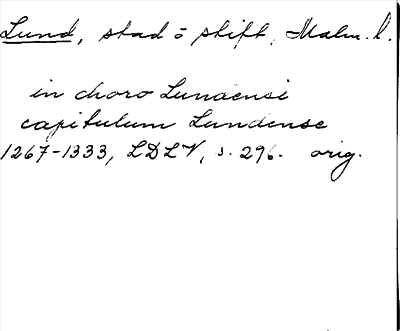 Lund, stad o stift, Malm. l.
in choro Lundensi
capitulum Lundense
1267-1333, LDLV, s. 296. orig.